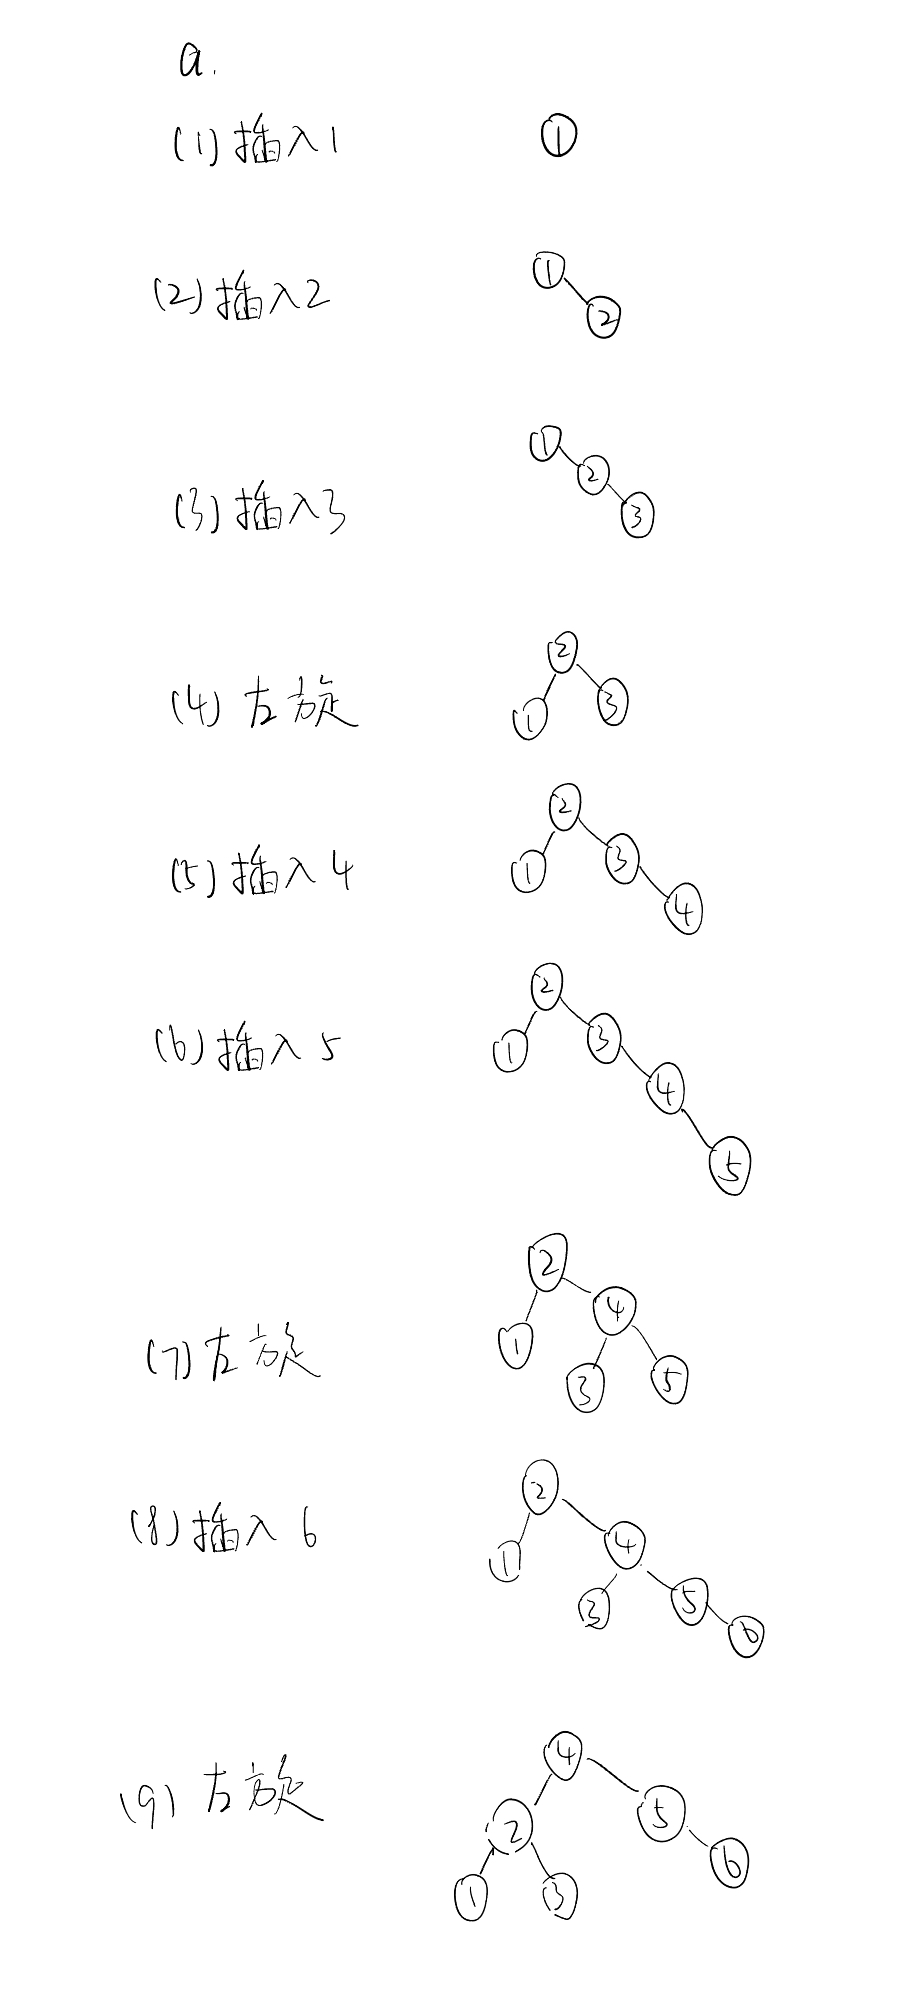 a.
(1) 插入1
1
(2) 插入2
1
2
(3) 插入3
1
2
3
(4) 左旋
2
1 3
(5) 插入4
2
1 3
4
(6) 插入5
2
1 3
4
5
(7) 左旋
2
4
1
3 5
(8) 插入6
2
4
1
3 5
6
(9) 左旋
4
2 5
6
1 3